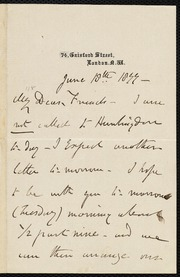 74, Gaisford Street,
London. N.W.
June 10th 1897 -
My Dear Friends - I am
not called to Huntingdon
to-day - I expect another
letter to-morrow. I hope
to be with you to-morrow
(Tuesday) morning about
1/2 past nine - and we
can then arrange our